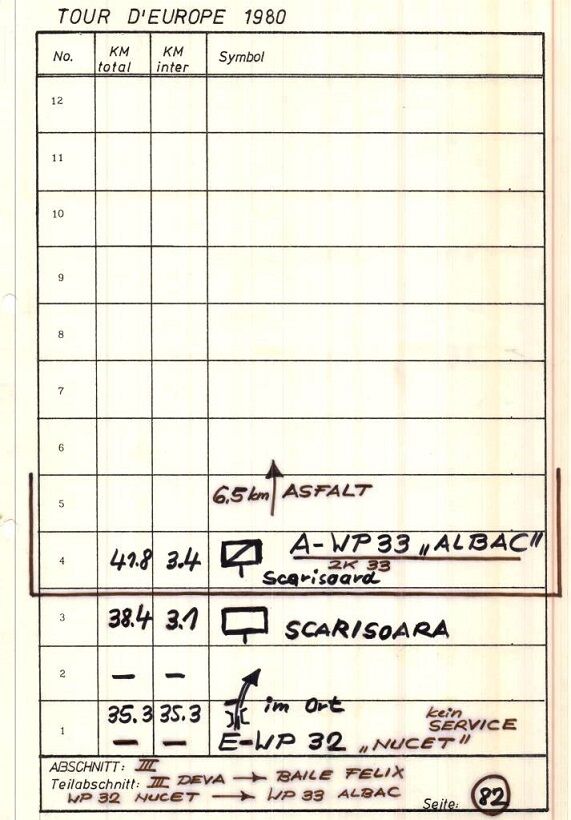 TOUR D'EUROPE 1980
No. KM total KM inter Symbol
12
11
10
9
8
7
6
5 6,5 km ASFALT
4 41.8 3.4 A-WP 33 „ALBAC"
ZK 33
Scarisoara
3 38.4 3.1 SCARISOARA
2 — —
35.3 35.3 im Ort
kein
SERVICE
1 — — E-WP 32 „NUCET"
ABSCHNITT: III
Teilabschnitt: III DEVA → BAILE FELIX
WP 32 NUCET → WP 33 ALBAC
Seite: 82